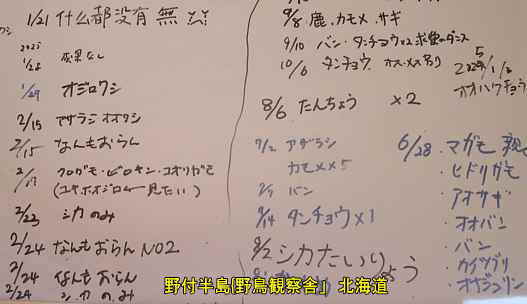 1/21 什么都没有 無
2025
1/28 成果なし
1/29 オジロワシ
2/15 アザラシ オオワシ
2/15 なんもおらん
クロガモ・ビロキン・コオリガモ
(ユキホオジロ 見たい)
2/23 シカのみ
2/24 なんもおらん NO2
2/24 なんもおらん
2/24 シカのみ
9/8 鹿、カモメ、サギ
9/10 バン・タンチョウ×2 求愛のダンス
10/6 タンチョウ オス・メス
オオハクチョウ
8/6 たんちょう ×2
アザラシ
カモメ×5
バン
タンチョウ×1
シカたいりょう
6/28 ・マガモ
・ヒドリガモ
・アオサギ
・オオバン
・バン
・カイツブリ
・オオジュリン
野付半島｢野鳥観察舎｣ 北海道